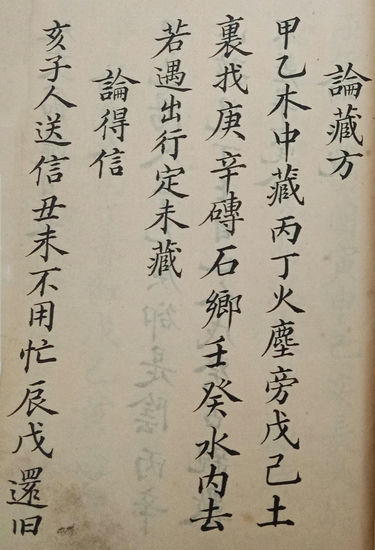 論藏方
甲乙木中藏丙丁火塵旁戊己土
裏找庚辛磚石鄉壬癸水内去
若遇出行定未藏
論得信
亥子人送信丑未不用忙辰戌還旧